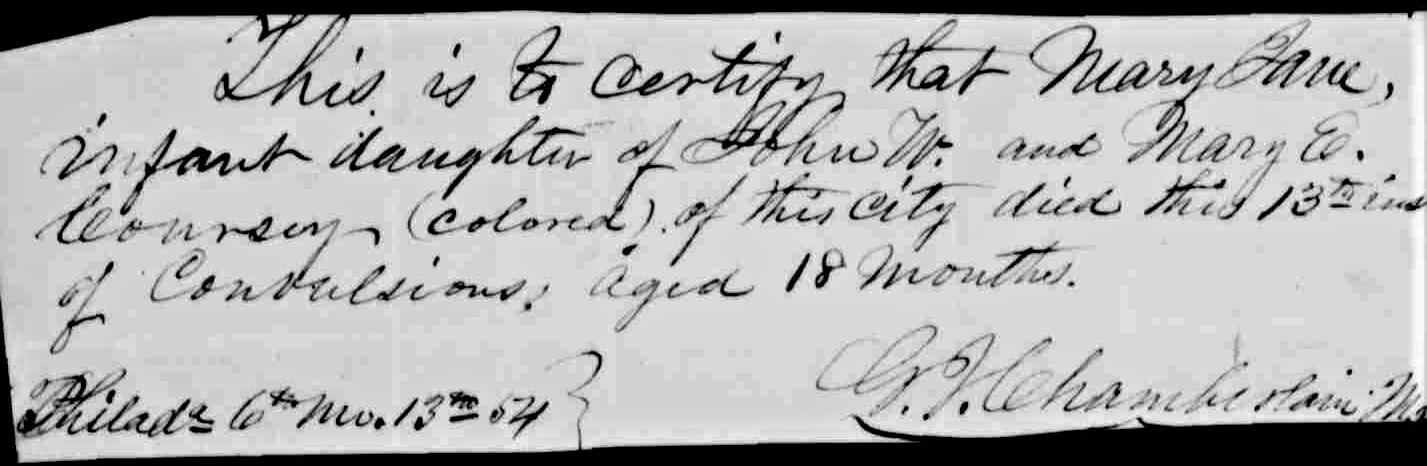 This is to certify that Mary Jane,
infant daughter of John W. and Mary E.
Coursey (colored) of this city died this 13th ins
of Convulsions; aged 18 months.
Philada 6th Mo. 13th 54 }
G. J. Chamberlain MD